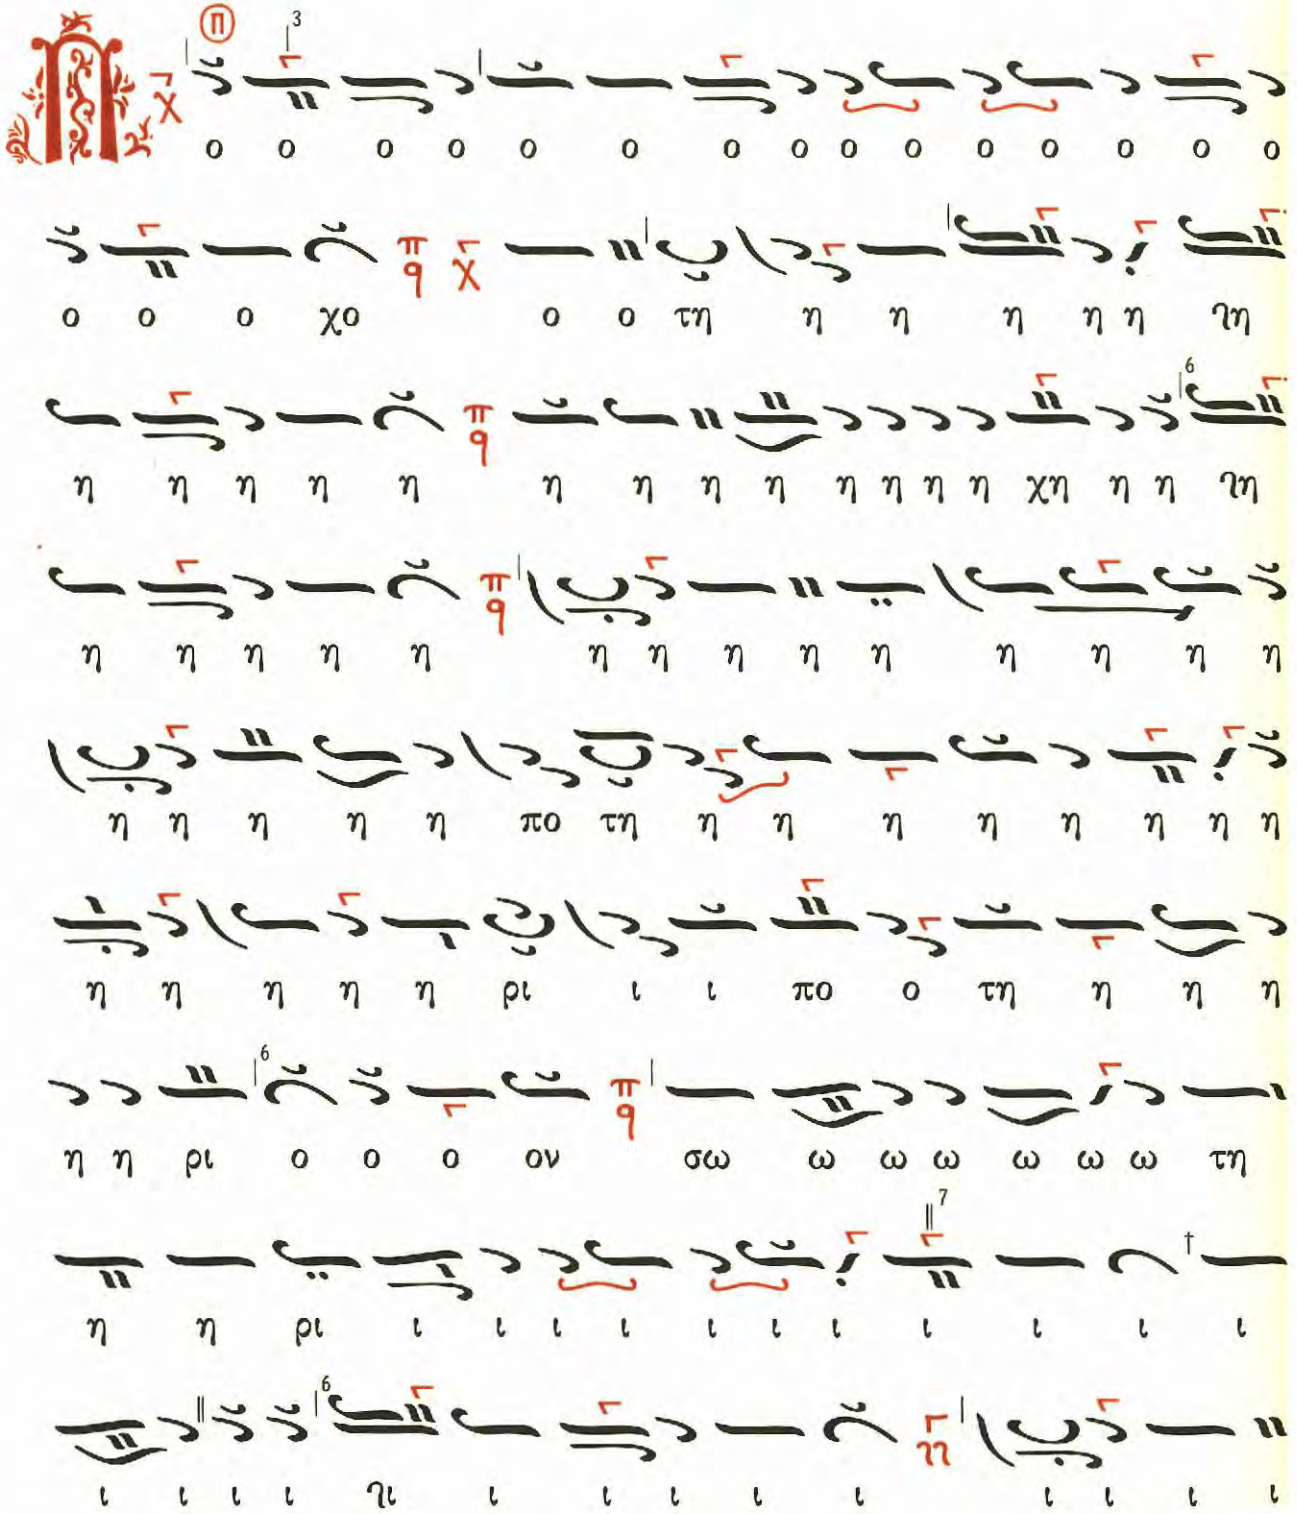 Π ο ο ο ο ο ο ο ο ο ο ο ο ο ο ο
ο ο ο χο ο ο τη η η η η η ϟη
η η η η η η η η η η η η η χη η η ϟη
η η η η η η η η η η η η η η
η η η η η πο τη η η η η η η η η
η η η η η ρι ι ι πο ο τη η η η
η η ρι ο ο ο ον σω ω ω ω ω ω ω τη
η η ρι ι ι ι ι ι ι ι ι ι ι ι
ι ι ι ι ϟι ι ι ι ι ι ι ι ι ι